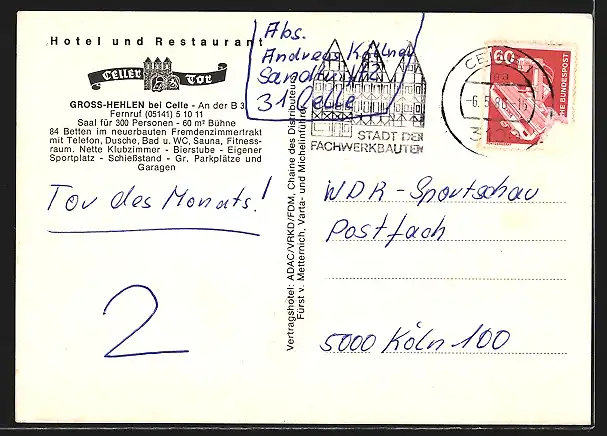 Hotel und Restaurant
Celler Tor
GROSS-HEHLEN bei Celle - An der B 3
Fernruf (05141) 5 10 11
Saal für 300 Personen - 60 m² Bühne
84 Betten im neuerbauten Fremdenzimmertrakt
mit Telefon, Dusche, Bad u. WC, Sauna, Fitness-
raum. Nette Klubzimmer - Bierstube - Eigener
Sportplatz - Schießstand - Gr. Parkplätze und
Garagen
Tor des Monats!
2
Vertragshotel: ADAC/VRKD/FDM, Chaine des Distributeurs
Fürst v. Metternich, Varta- und Michelinführer
Abs.
Andreas
31 Celle
STADT DER
FACHWERKBAUTEN
CELLE
-6.5.
60
BUNDESPOST
WDR-Sportschau
Postfach
5000 Köln 100